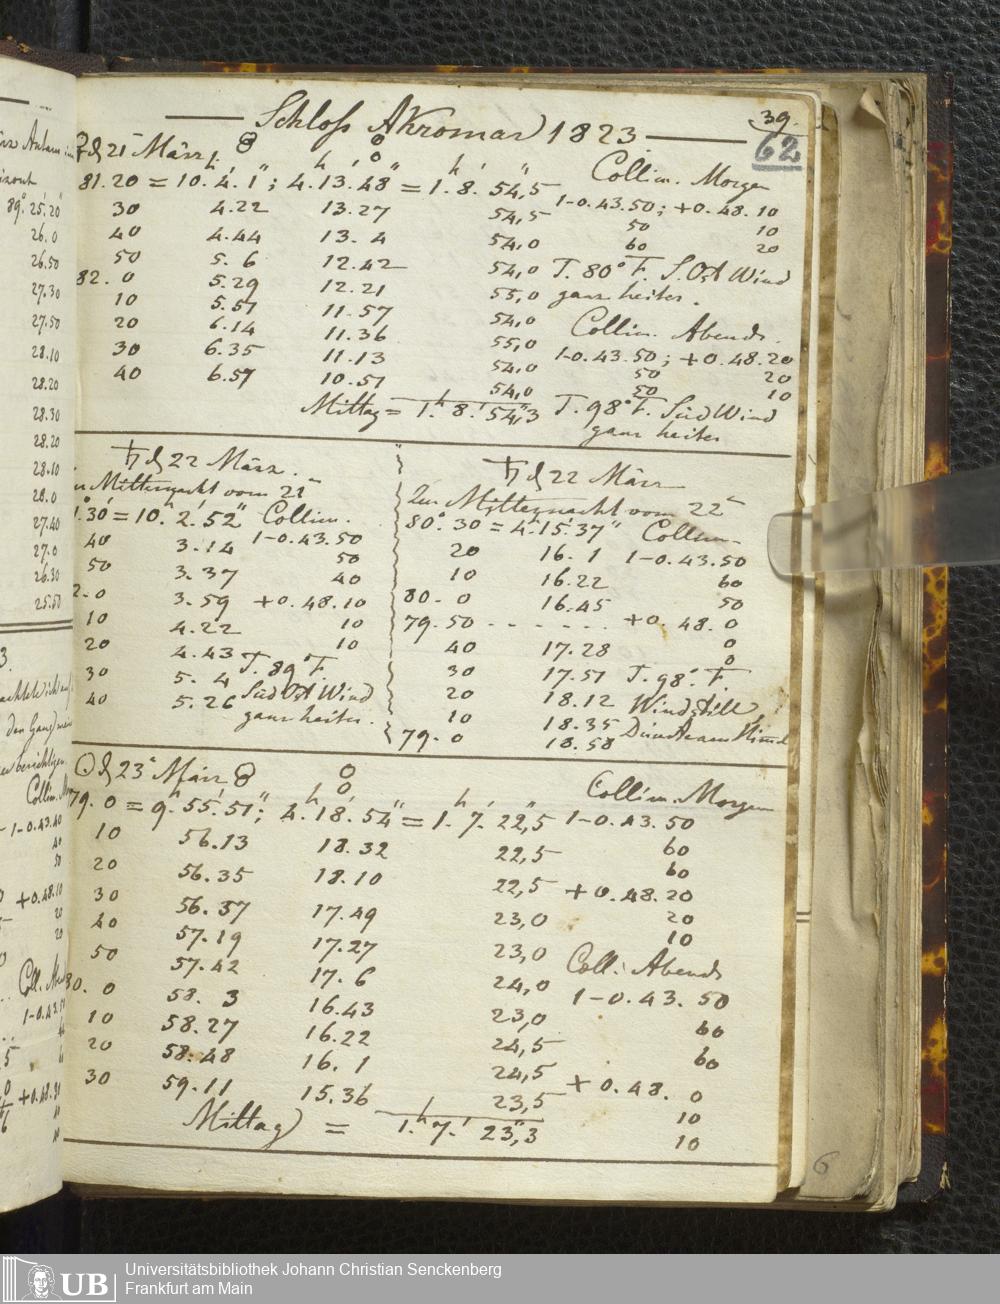 Schloss Akromar 1823.
39.
62
♀ d 21 März
81.20 = 10.h 4.' 1"; 4.h 13.' 48" = 1.h 8.' 54,"5
30 4.22 13.27 54,5
40 4.44 13. 4 54,0
50 5. 6 12.42 54,0
82. 0 5.29 12.21 55,0
10 5.51 11.57 54,0
20 6.14 11.36 55,0
30 6.35 11.13 54,0
40 6.57 10.51 54,0
Mittag = 1.h 8.' 54,"3
Collim. Morgen
1-0.43.50; +0.48.10
50 10
60 20
T. 80° F. S.Ost Wind
ganz heiter.
Collim. Abends.
1-0.43.50; +0.48.20
50 20
50 10
T. 98° F. Süd Wind
ganz heiter
♄ d 22 März.
Mitternacht vom 21
1.°30' = 10.h 2.' 52" Collim.
40 3.14 1-0.43.50
50 3.37 50
2. 0 3.59 40
10 4.22 +0.48.10
20 4.43 10
30 5. 4 10
40 5.26
T. 89° F.
Süd Ost Wind
ganz heiter.
♄ d 22 März
Zur Mitternacht vom 22
80.° 30 = 4.h 15.' 37" Collim.
20 16. 1 1-0.43.50
10 16.22 60
80. 0 16.45 50
79.50 - - - - - - - +0.48. 0
40 17.28 0
30 17.51 0
20 18.12 T. 98° F.
10 18.35 Windstill
79. 0 18.58
☉ d 23 März
79. 0 = 9.h 55.' 51"; 4.h 18.' 54" = 1.h 7.' 22,"5
10 56.13 18.32 22,5
20 56.35 18.10 22,5
30 56.57 17.49 23,0
40 57.19 17.27 23,0
50 57.42 17. 6 24,0
80. 0 58. 3 16.43 23,0
10 58.27 16.22 24,5
20 58.48 16. 1 24,5
30 59.11 15.36 23,5
Mittag = 1.h 7.' 23,"3
Collim. Morgen
1-0.43.50
60
60
+0.48.20
20
10
Coll. Abends
1-0.43.50
60
60
+0.48. 0
10
10
6
89.° 25.' 20"
26.0
26.50
27.30
27.50
28.10
28.20
28.30
28.20
28.10
28.0
27.40
27.0
26.30
25.50
UB
Universitätsbibliothek Johann Christian Senckenberg
Frankfurt am Main